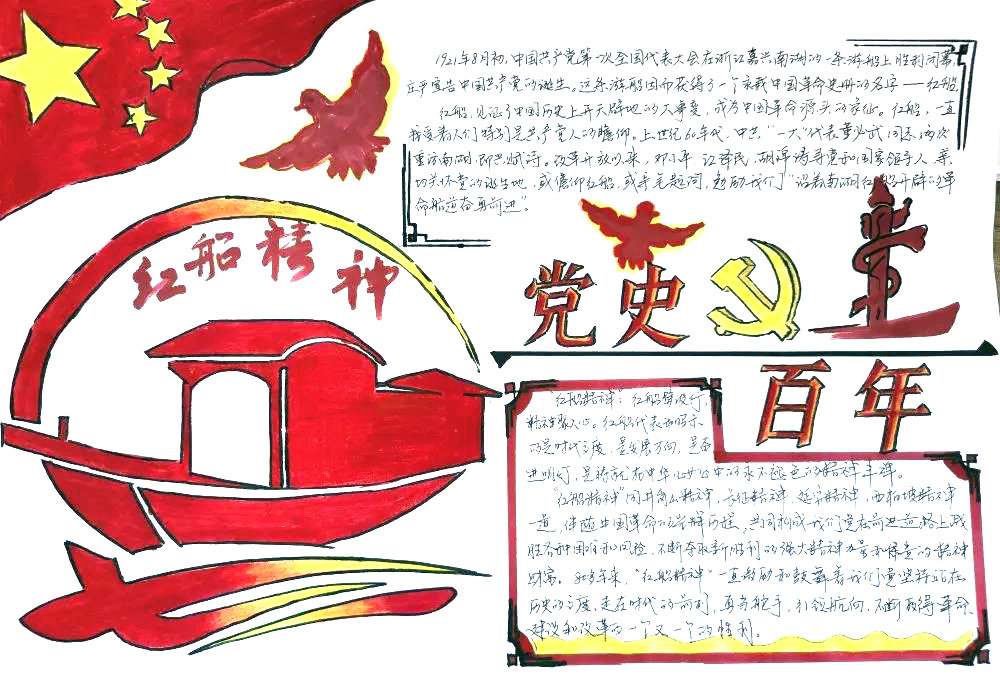 红船精神
1921年8月初,中国共产党第一次全国代表大会在浙江嘉兴南湖的一条游船上胜利闭幕,
庄严宣告中国共产党的诞生。这条游船因而获得了一个永载中国革命史册的名字——红船。
红船,见证了中国历史上开天辟地的大事变,成为中国革命源头的象征。红船,一直
接受着人们特别是共产党人的瞻仰。上世纪60年代,中共“一大”代表董必武同志两次
重访南湖,即兴赋诗。改革开放以来,邓小平 江泽民、胡锦涛等党和国家领导人 亲
切关怀党的诞生地,或瞻仰红船,或亲笔题词,勉励我们“沿着南湖红船开辟的革
命航道奋勇前进”。
党史
百年
“红船精神”:红船劈波行,
精神聚人心。红船代表和昭示
的是时代高度,是发展方向,是奋
进明灯,是铸就在中华儿女心中的永不褪色的精神丰碑。
“红船精神”同井冈山精神、长征精神、延安精神、西柏坡精神
一道,伴随中国革命的光辉历程,共同构成我们党在前进道路上战
胜各种困难和风险、不断夺取新胜利的强大精神力量和宝贵的精神
财富。 年来,“红船精神”一直激励和鼓舞着我们党坚持站在
历史的高度,走在时代的前列,勇当舵手,引领航向,不断取得革命、
建设和改革的一个又一个的胜利。